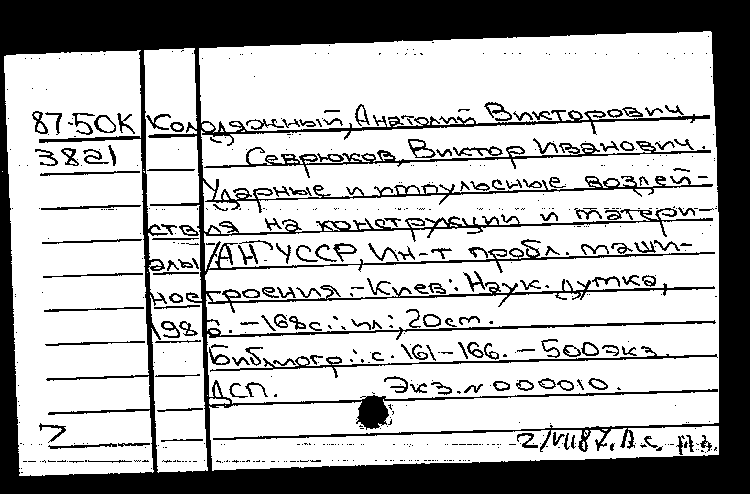 87-50К Колодяжный, Анатолий Викторович,
3821 Севрюков, Виктор Иванович.
Ударные и импульсные воздей-
ствия на конструкции и матери-
алы/АН УССР, Ин-т пробл. маши-
ностроения.-Киев: Наук. думка,
1986. -168с.: ил.; 20см.
Библиогр.: с. 161-166. - 500экз.
ДСП. Экз. № 000010.
7 2/VII87. Д.с.